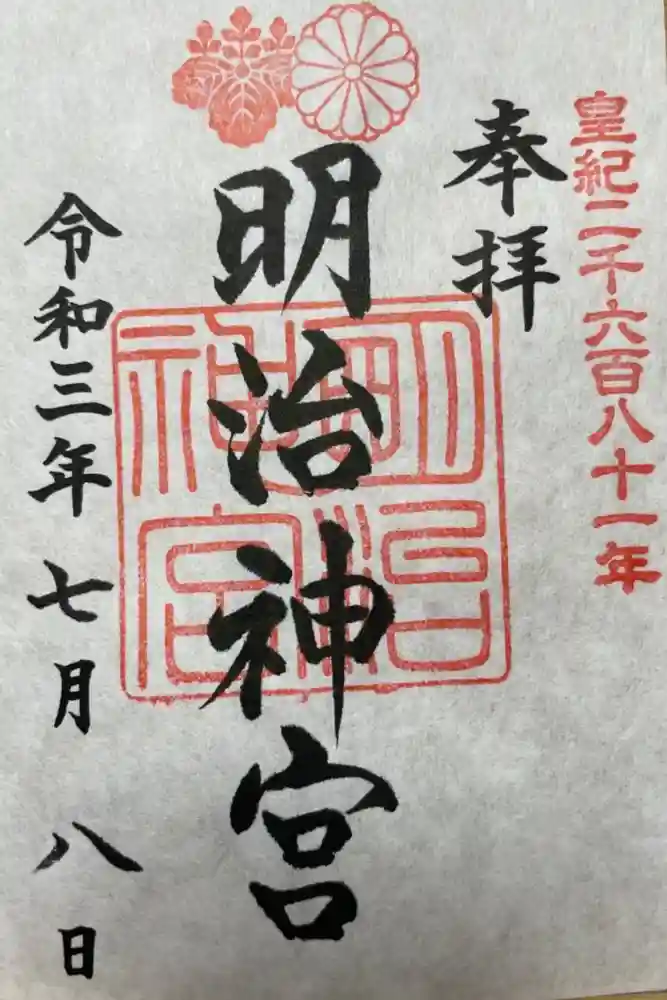 皇紀二千六百八十一年
奉拝
明治神宮
明治神宮
令和三年七月八日